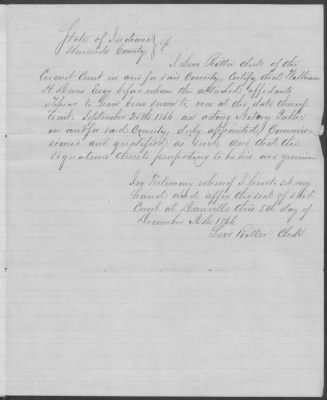 State of Indiana }
Hendricks County } ss
I Levi Ritter clerk of the
Circuit Court in and for said County, Certify that William
H. Esqr before whom the attached affidavits
appear to have been sworn to was at the date thereof
to wit, September 25th 1866 an acting Notary Public
in and for said County, duly appointed, Commis-
sioned and qualified as such, and that the
signatures thereto purporting to be his are genuine
In Testimony whereof I hereto set my
hand and affix the seal of said
Court at Danville this 5th day of
December A.D. 1866
Levi Ritter Clerk